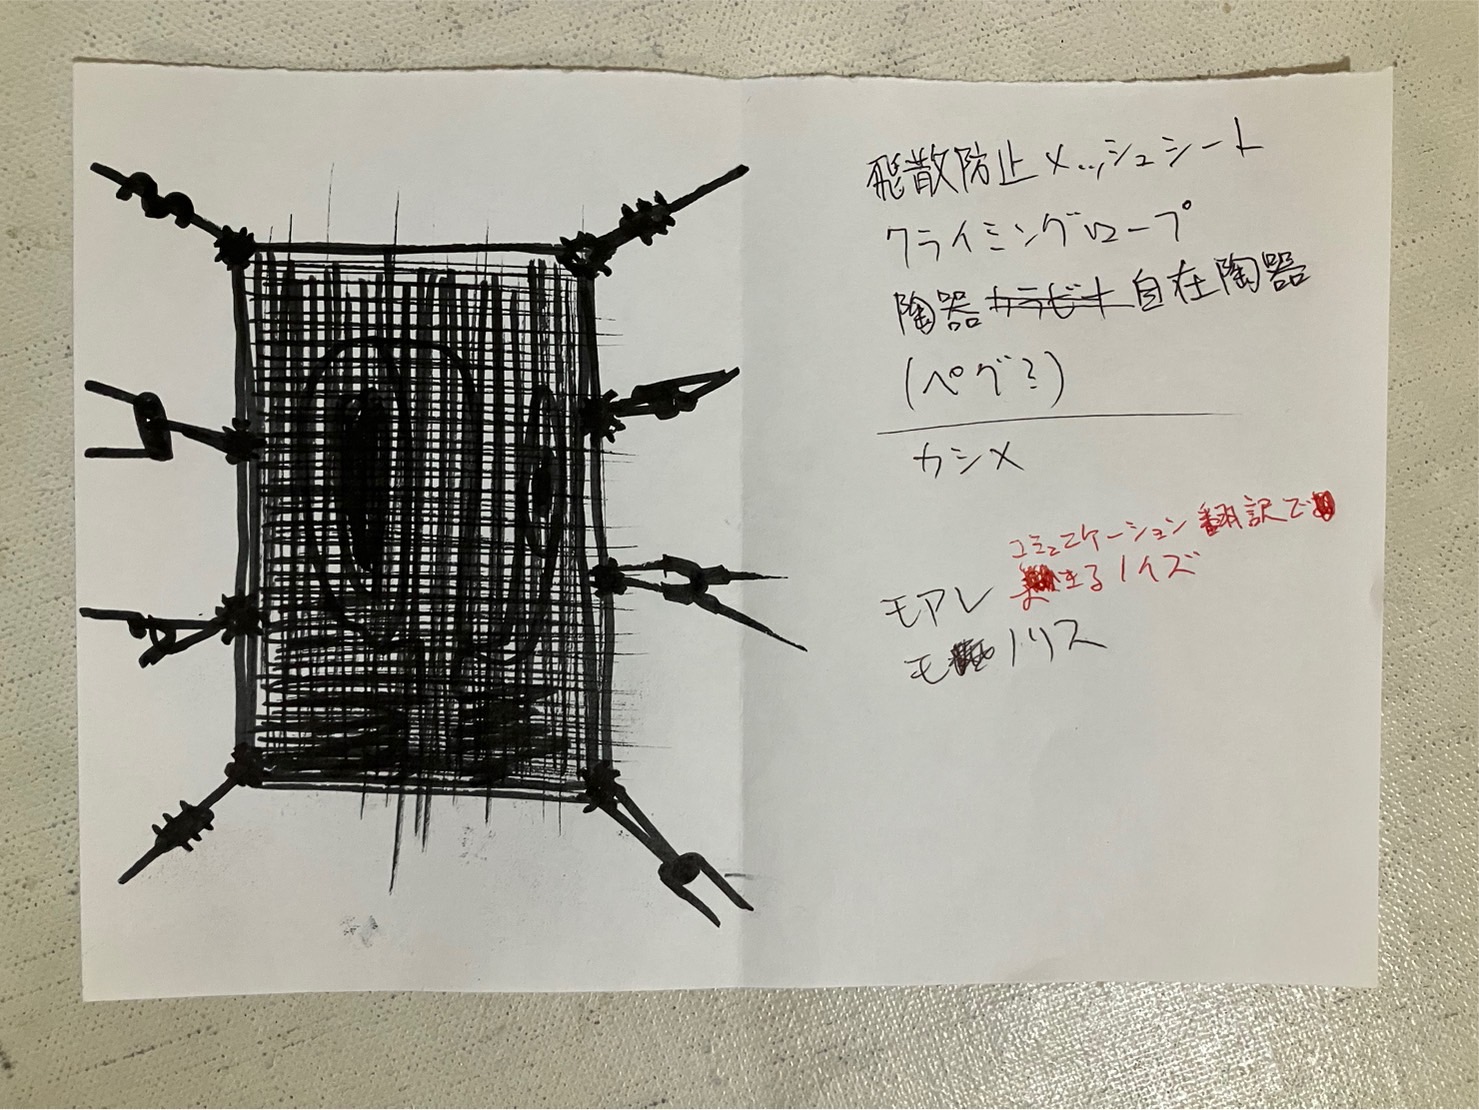 飛散防止メッシュシート
クライミングロープ
陶器カラビナ自在陶器
(ペグ?)
カシメ
コミュニケーション翻訳で
きるノイズ
モアレ
モノリス